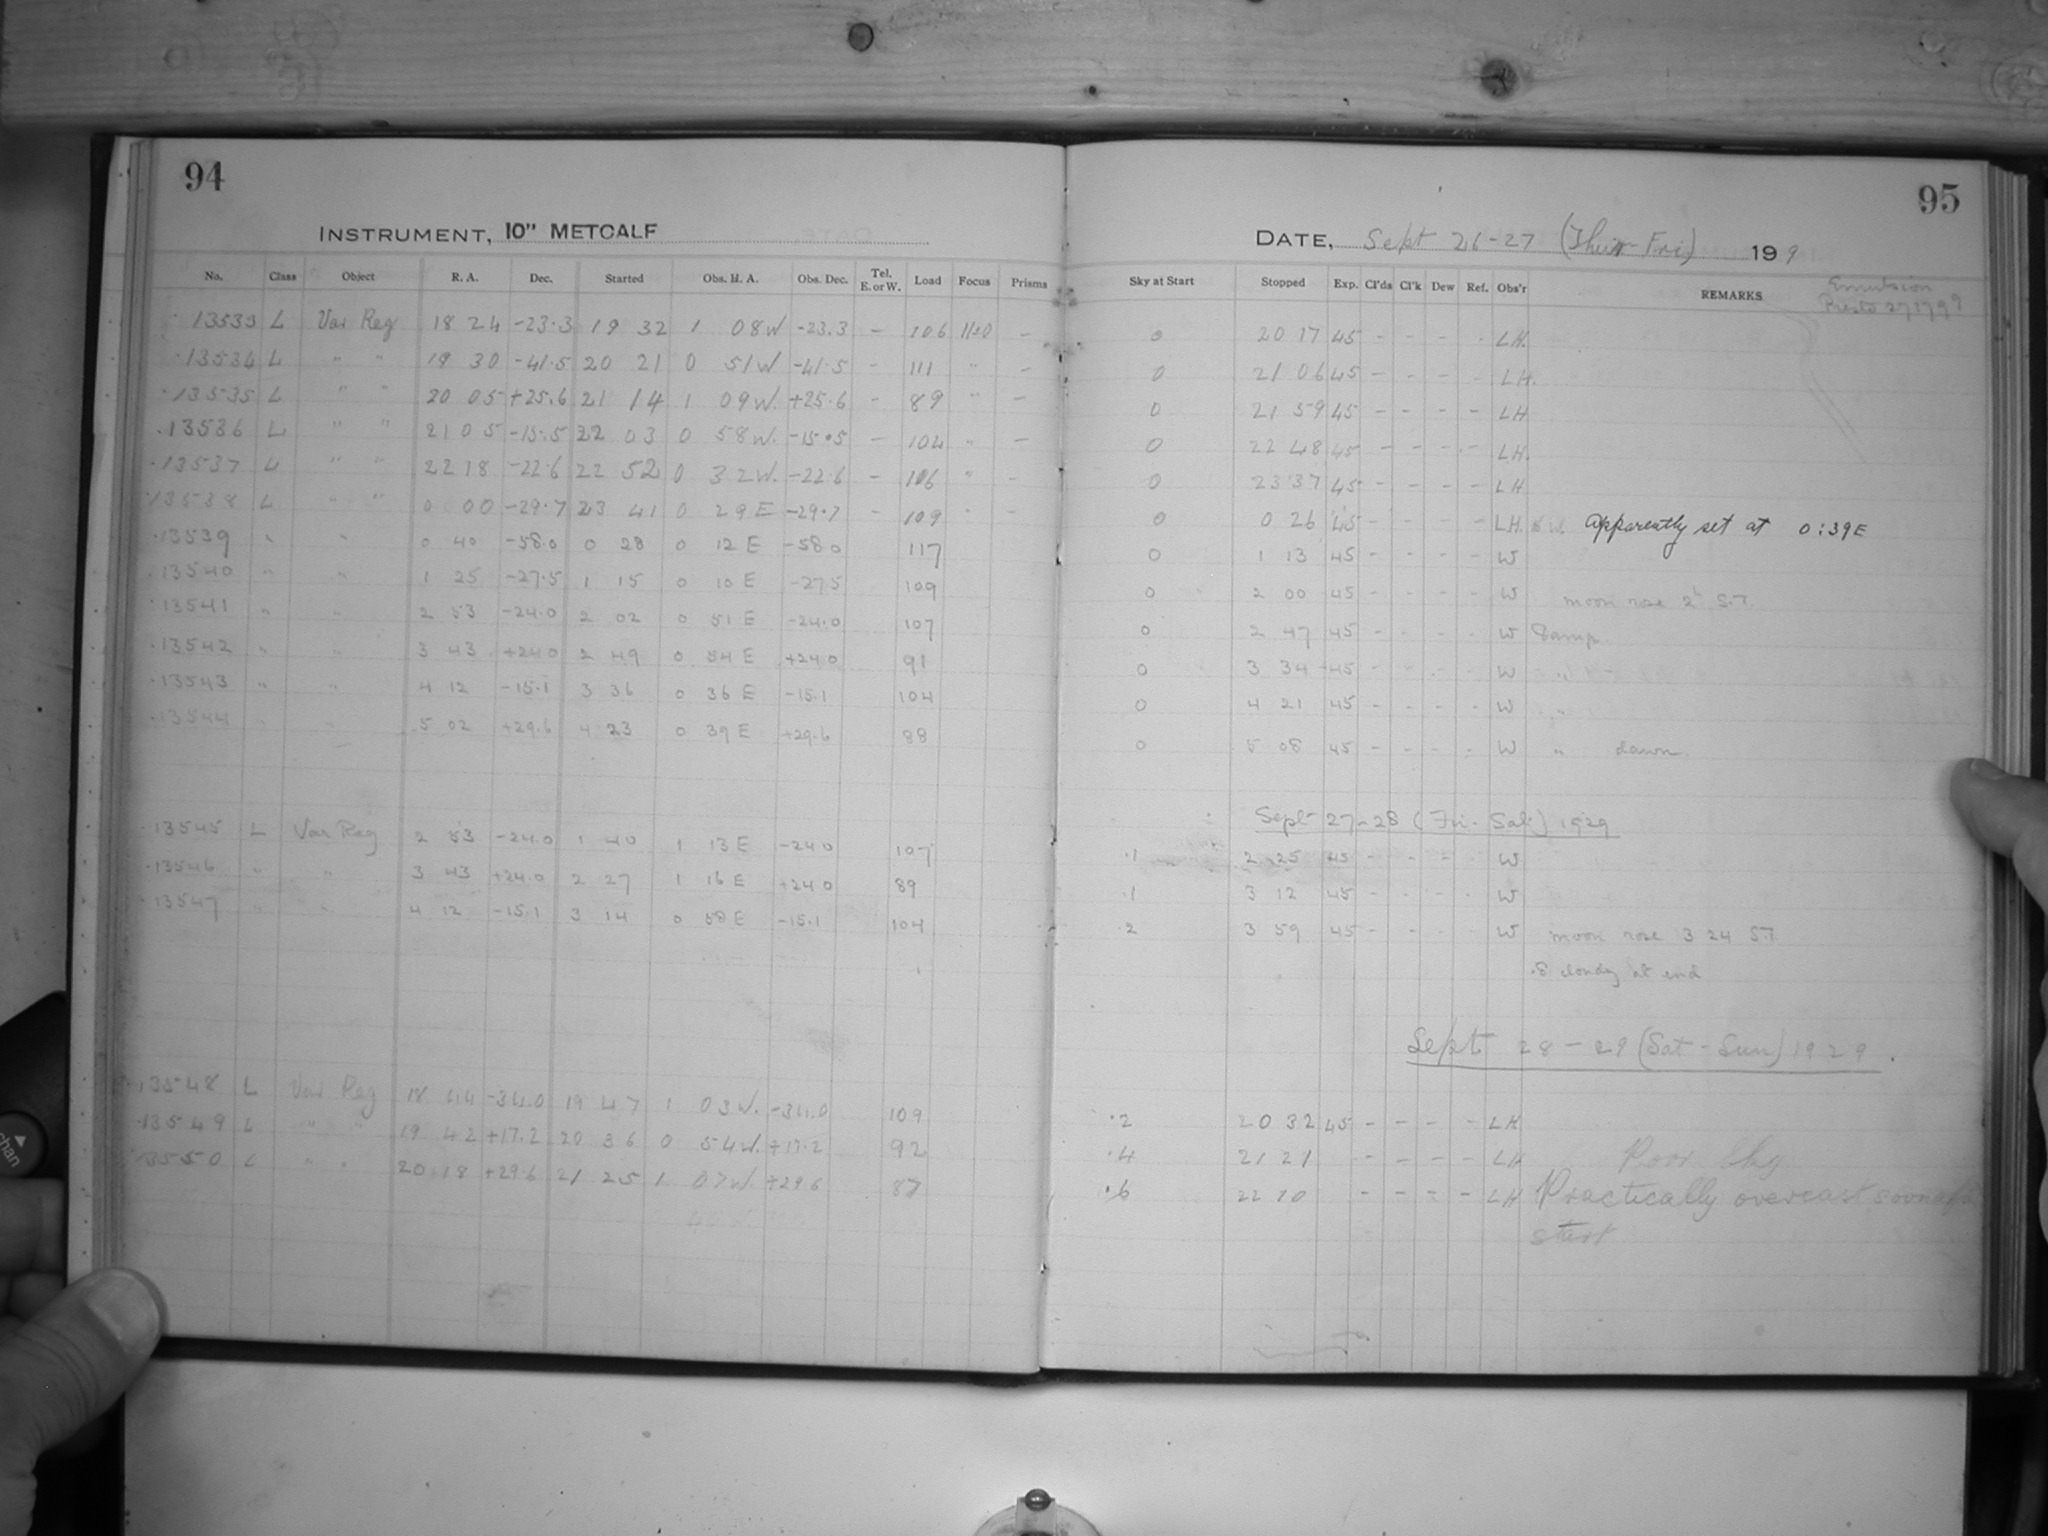 94
INSTRUMENT, 10" METCALF
No. Class Object R. A. Dec. Started Obs. H. A. Obs. Dec. Tel. E. or W. Load Focus Prisms
13533 L Var Reg 18 24 -23.3 19 32 1 08W -23.3 - 106 1120 -
13534 L " " 19 30 -41.5 20 21 0 51W -41.5 - 111 " -
13535 L " " 20 05 +25.6 21 14 1 09W. +25.6 - 89 " -
13536 L " " 21 05 -15.5 22 03 0 58W. -15.5 - 104 " -
13537 L " " 22 18 -22.6 22 52 0 32W. -22.6 - 106 " -
13538 L " " 0 00 -29.7 23 41 0 29E -29.7 - 109 " -
13539 " " 0 40 -58.0 0 28 0 12 E -58.0 117
13540 " " 1 25 -27.5 1 15 0 10 E -27.5 109
13541 " " 2 53 -24.0 2 02 0 51 E -24.0 107
13542 " " 3 43 +24.0 2 49 0 54 E +24.0 91
13543 " " 4 12 -15.1 3 36 0 36 E -15.1 104
13544 " " 5 02 +29.6 4 23 0 39 E +29.6 88
13545 L Var Reg 2 53 -24.0 1 40 1 13 E -24.0 107
13546 " " 3 43 +24.0 2 27 1 16 E +24.0 89
13547 " " 4 12 -15.1 3 14 0 58 E -15.1 104
13548 L Var Reg 18 44 -34.0 19 47 1 03W. -34.0 109
13549 L " " 19 42 +17.2 20 36 0 54W. +17.2 92
13550 L " " 20 18 +29.6 21 25 1 07W. +29.6 87
95
DATE, Sept 26-27 (Thur-Fri) 1929
Sky at Start Stopped Exp. Cl'ds Cl'k Dew Ref. Obs'r REMARKS Emulsion
0 20 17 45 - - - - LH.
0 21 06 45 - - - - LH.
0 21 59 45 - - - - LH
0 22 48 45 - - - - LH.
0 23 37 45 - - - - LH
0 0 26 45 - - - - LH. Apparently set at 0:39E
0 1 13 45 - - - - W
0 2 00 45 - - - - W moon rose 2h S.T.
0 2 47 45 - - - - W Damp.
0 3 34 45 - - - - W
0 4 21 45 - - - - W "
0 5 08 45 - - - - W " dawn
Sept 27-28 (Fri-Sat) 1929
.1 2 25 45 - - - - W
.1 3 12 45 - - - - W
.2 3 59 45 - - - - W moon rose 3 24 S.T.
.8 cloudy at end
Sept 28-29 (Sat-Sun) 1929.
.2 20 32 45 - - - - LH
.4 21 21 - - - - LH Poor
.6 22 10 - - - - LH Practically overcast soon
start